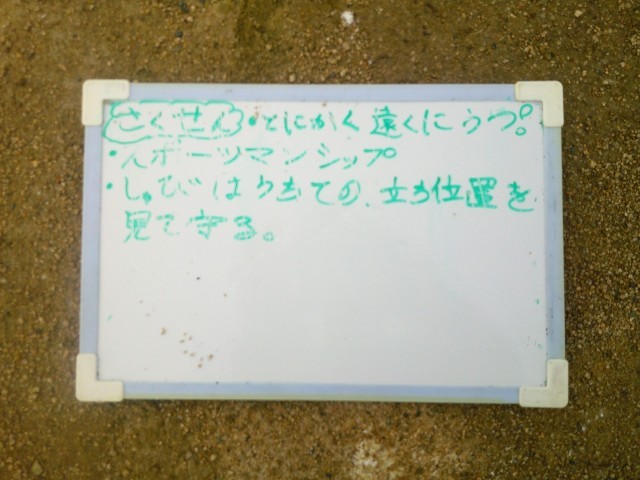 さくせん・とにかく遠くにうつ!
・スポーツマンシップ
・しゅびはうちての、立ち位置を
見て守る。